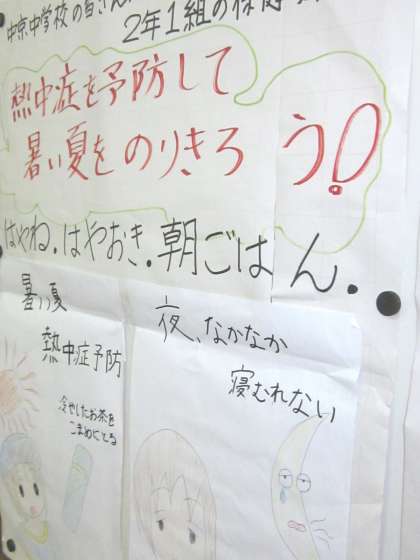 中京中学校の皆さん
2年1組の保健
熱中症を予防して
暑い夏をのりきろう!
はやね.はやおき.朝ごはん.
暑い夏
熱中症予防
冷やしたお茶を
こまめにとる
夜、なかなか
寝むれない